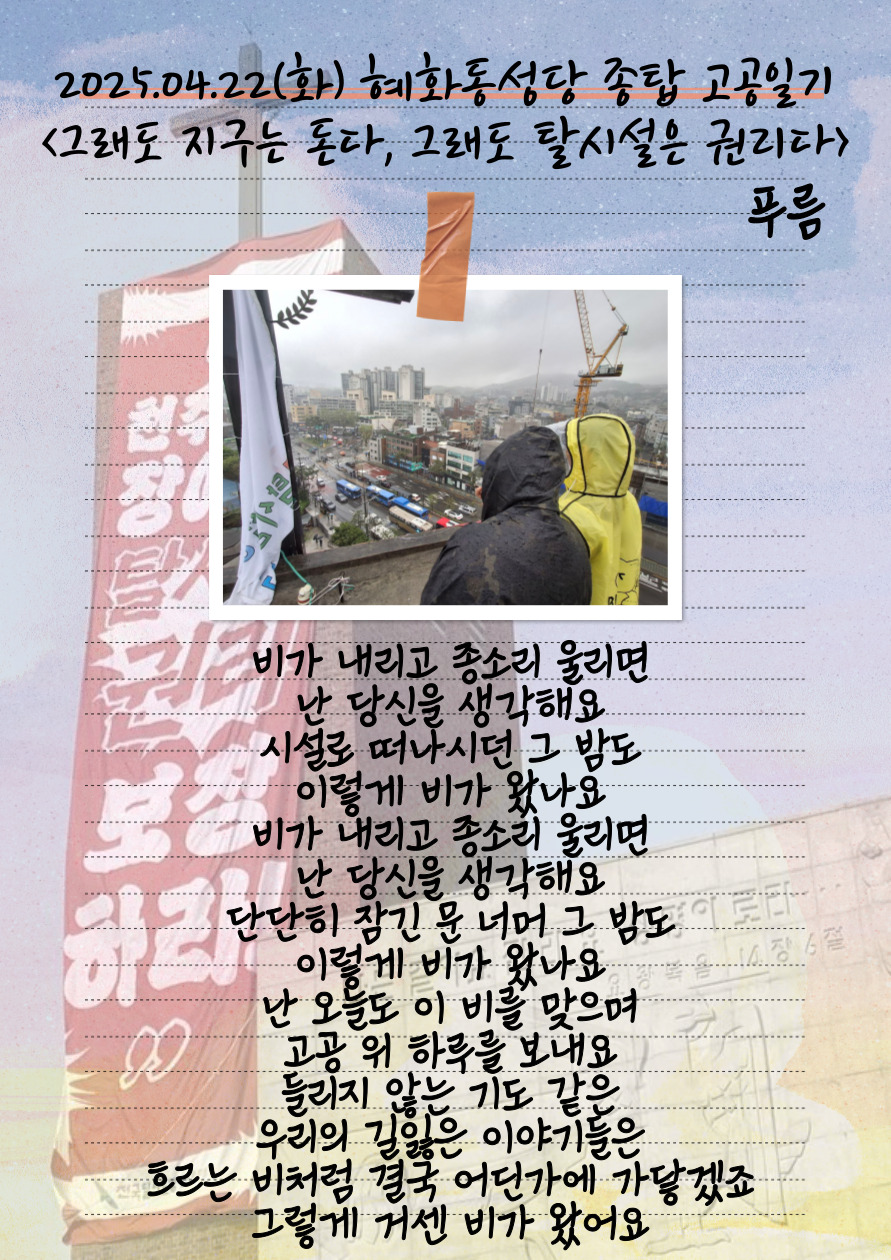 2025.04.22(화) 혜화동성당 종탑 고공일기
<그래도 지구는 돈다, 그래도 탈시설은 권리다>
푸름
비가 내리고 종소리 울리면
난 당신을 생각해요
시설로 떠나시던 그 밤도
이렇게 비가 왔나요
비가 내리고 종소리 울리면
난 당신을 생각해요
단단히 잠긴 문 너머 그 밤도
이렇게 비가 왔나요
난 오늘도 이 비를 맞으며
고공 위 하루를 보내요
들리지 않는 기도 같은
우리의 길잃은 이야기들은
흐르는 비처럼 결국 어딘가에 가닿겠죠
그렇게 거센 비가 왔어요
보장
하라